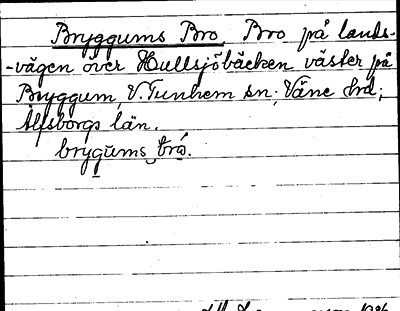 Bryggums Bro Bro på lands-
-vägen över Hullsjöbäcken väster på
Bryggum, V. Tunhem sn; Väne hrd;
Älfsborgs län.
brygums brö.